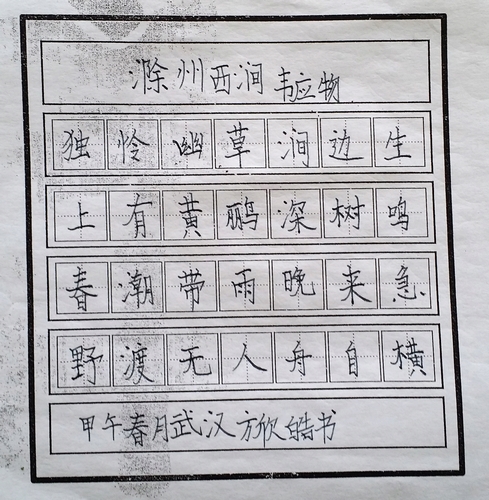 滁州西涧 韦应物
独怜幽草涧边生
上有黄鹂深树鸣
春潮带雨晚来急
野渡无人舟自横
甲午春月武汉方欣皓书